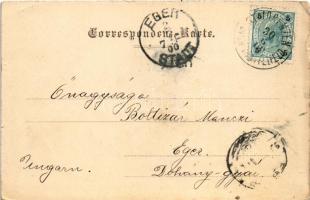 Correspondenz-Karte.
EGER
STADT
Őnagysága
Boltizár Manczi
Eger
Dohány-gyár.
Ungarn.